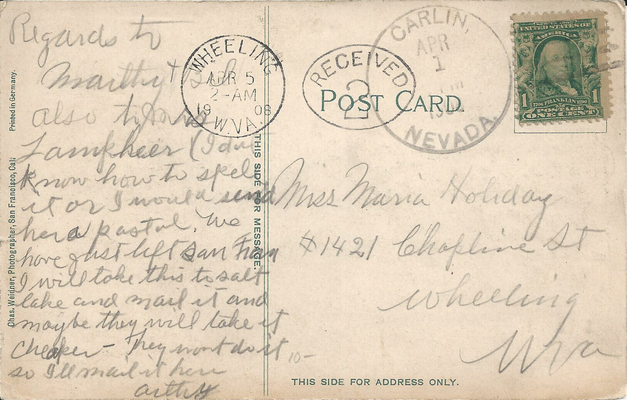 Regards to
Marthy +
also to Mrs
Lampheer (I don't
know how to spell
it or I would send
her a postal. We
have just left San Fran
I will take this to salt
lake and mail it and
maybe they will take it
cheaper - They wont do it
so I'll mail it here
WHEELING
APR 5
2-AM
19 08
W.VA.
RECEIVED
2
CARLIN,
APR
1
NEVADA.
UNITED STATES OF
AMERICA
1 FRANKLIN 1
POSTAGE
ONE CENT
POST CARD.
Miss Maria Holiday
#1421 Chapline St
Wheeling
W va
10-
THIS SIDE FOR MESSAGE
THIS SIDE FOR ADDRESS ONLY.
Printed in Germany.
Chas. Weidner, Photographer, San Francisco, Cal.